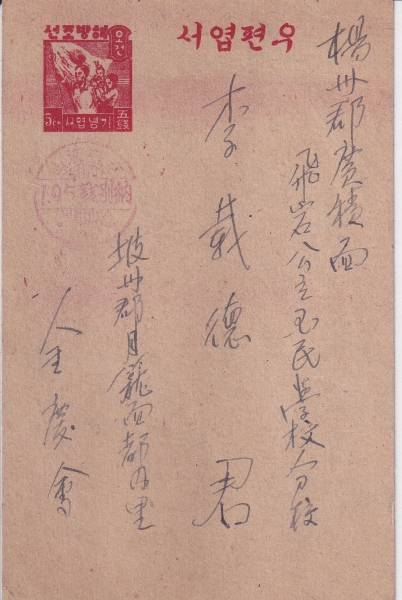 우편엽서
해방조선
오전
기념엽서
5cn
五錢
楊州郡廣積面
飛岩公立국民學校分校
李載德 君
坡州郡月籠面都内里
金慶會